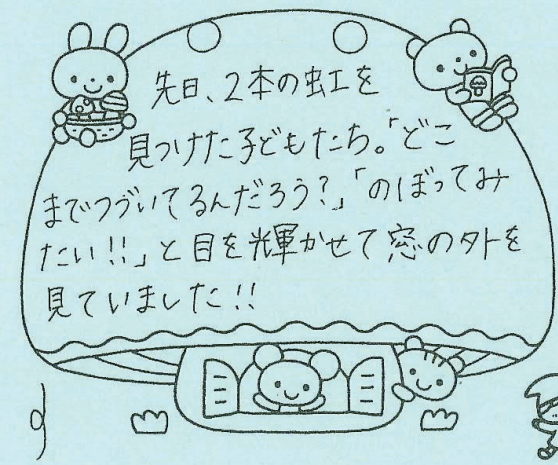 先日、2本の虹を
見つけた子どもたち。「どこ
までつづいてるんだろう?」「のぼってみ
たい!!」と目を輝かせて窓の外を
見ていました!!